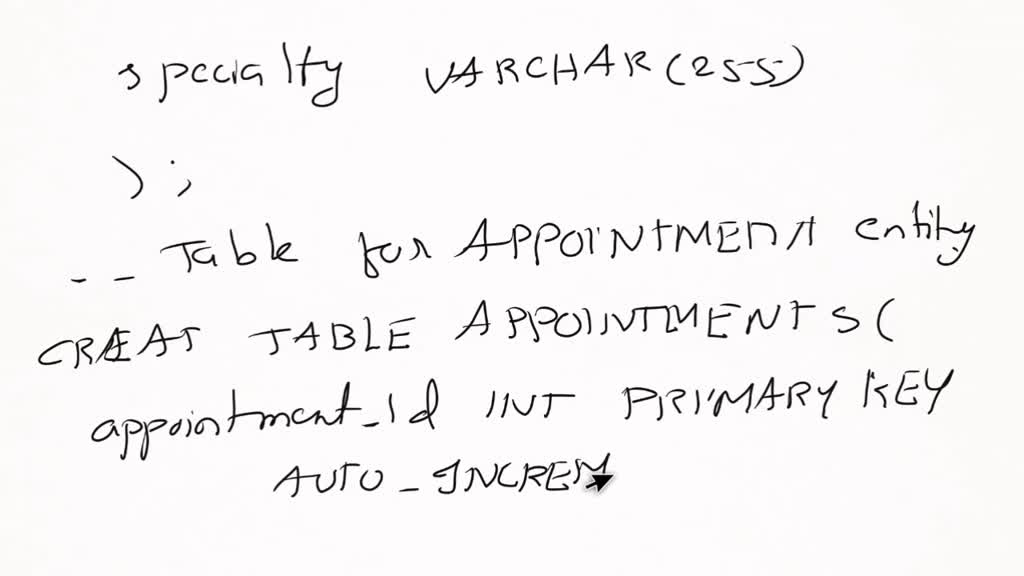 specialty VARCHAR(255)
);
-- Table for APPOINTMENT entity
CREAT TABLE APPOINTMENTS(
appointment_id INT PRIMARY KEY
AUTO_INCREM